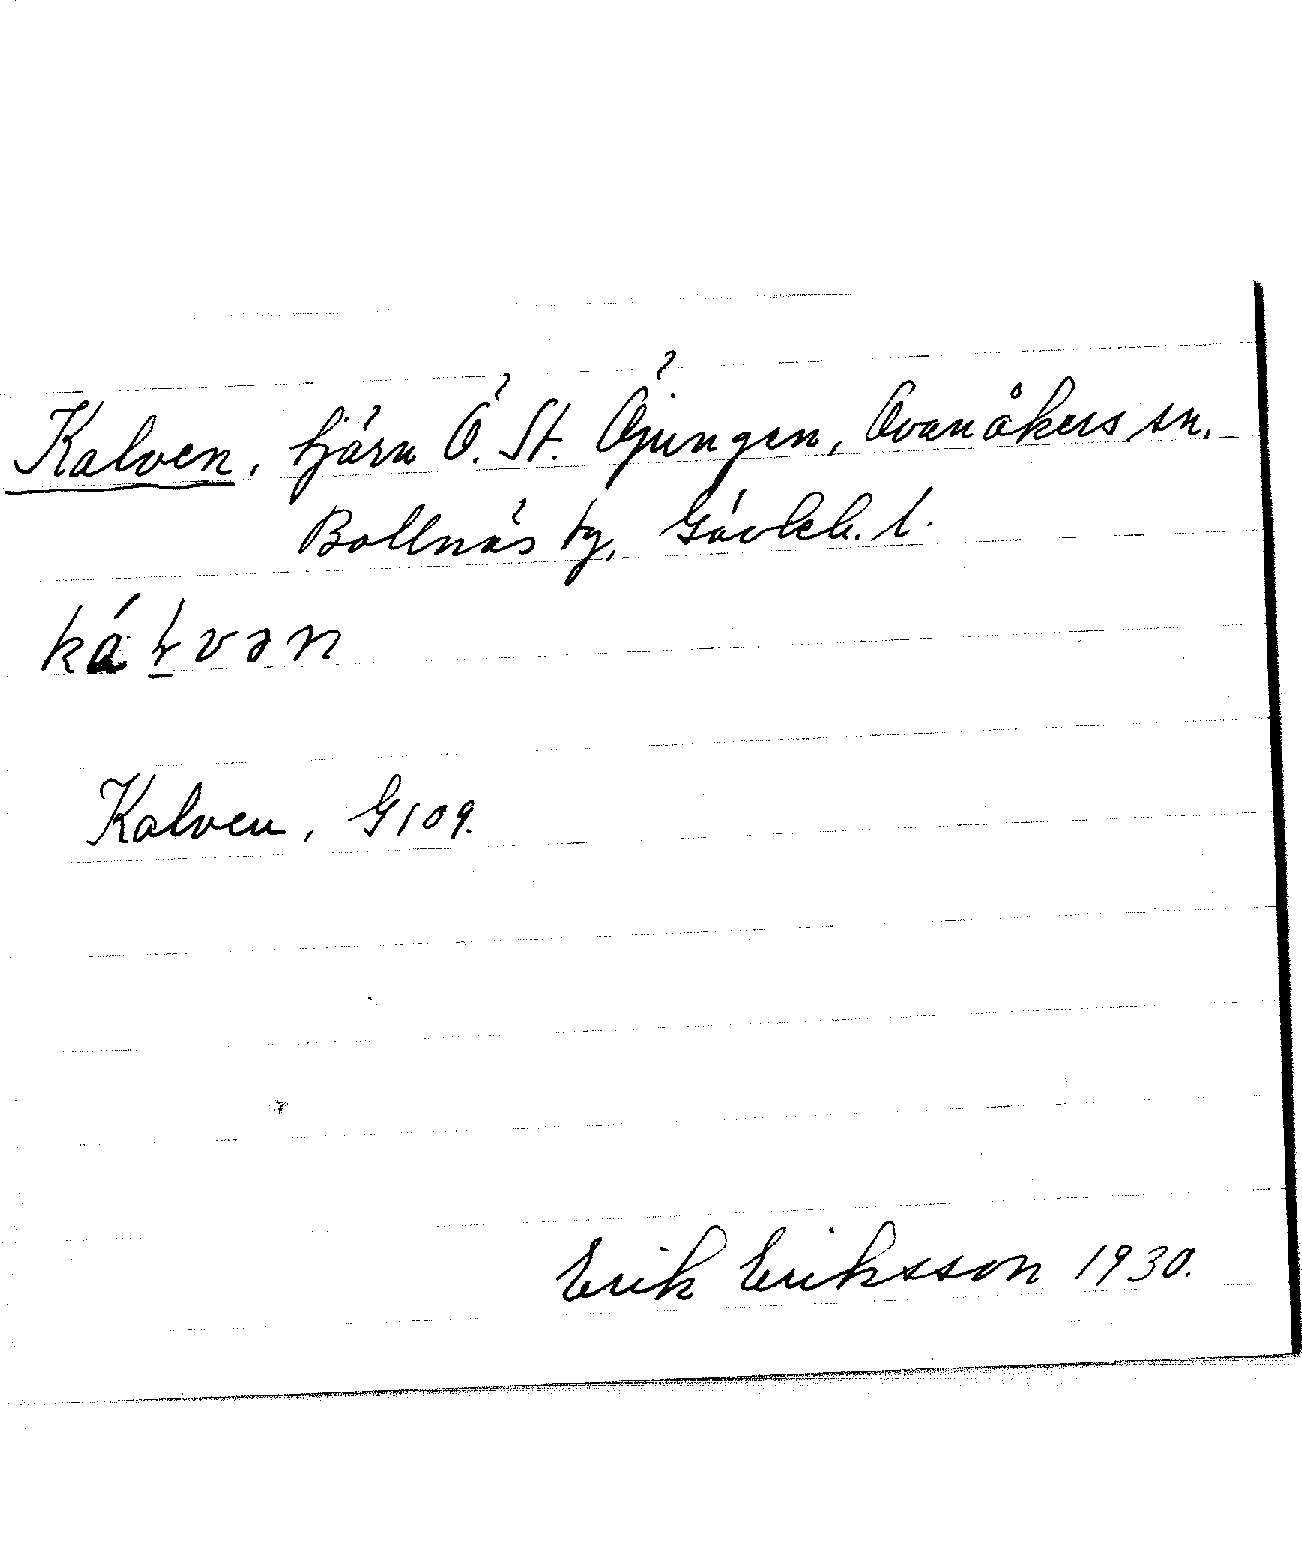 Kalven, tjärn Ö. St. Öjungen, Ovanåkers sn.
Bollnäs tg, Gävleb. l.
káɫvən
Kalven, G109.
Erik Eriksson 1930.